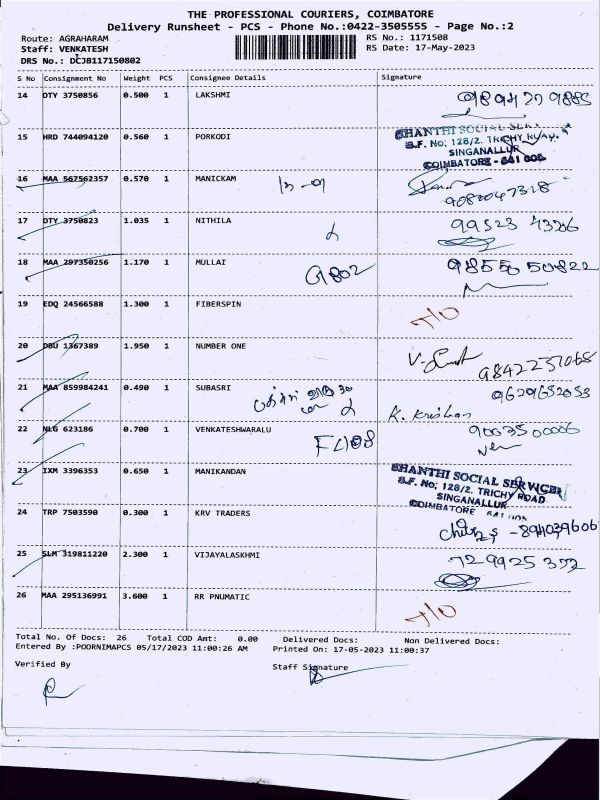 THE PROFESSIONAL COURIERS, COIMBATORE
Delivery Runsheet - PCS - Phone No.:0422-3505555 - Page No.:2
Route: AGRAHARAM RS No.: 1171508
Staff: VENKATESH RS Date: 17-May-2023
DRS No.: DCJB117150802
S No Consignment No Weight PCS Consignee Details Signature
14 DTY 3750856 0.500 1 LAKSHMI
15 HRD 744094120 0.560 1 PORKODI
SHANTHI SOCIAL SERVICES
S.F. No: 128/2, TRICHY ROAD,
SINGANALLUR
COIMBATORE - 641 005
16 MAA 567562357 0.570 1 MANICKAM
17 DTY 3750823 1.035 1 NITHILA 99523 43266
18 MAA 297350256 1.170 1 MULLAI G802 98555 50822
19 EDQ 24566588 1.300 1 FIBERSPIN
20 DBU 1367389 1.950 1 NUMBER ONE
21 MAA 859984241 0.490 1 SUBASRI
K. Krishnan
22 NLG 623186 0.700 1 VENKATESHWARALU
23 IXM 3396353 0.650 1 MANIKANDAN
SHANTHI SOCIAL SERVICES
S.F. No; 128/2, TRICHY ROAD
SINGANALLUR
COIMBATORE 641 005
24 TRP 7503590 0.300 1 KRV TRADERS
25 SLM 319811220 2.300 1 VIJAYALASKHMI 729925 372
26 MAA 295136991 3.600 1 RR PNUMATIC
Total No. Of Docs: 26 Total COD Amt: 0.00 Delivered Docs: Non Delivered Docs:
Entered By :POORNIMAPCS 05/17/2023 11:00:26 AM Printed On: 17-05-2023 11:00:37
Verified By Staff Signature